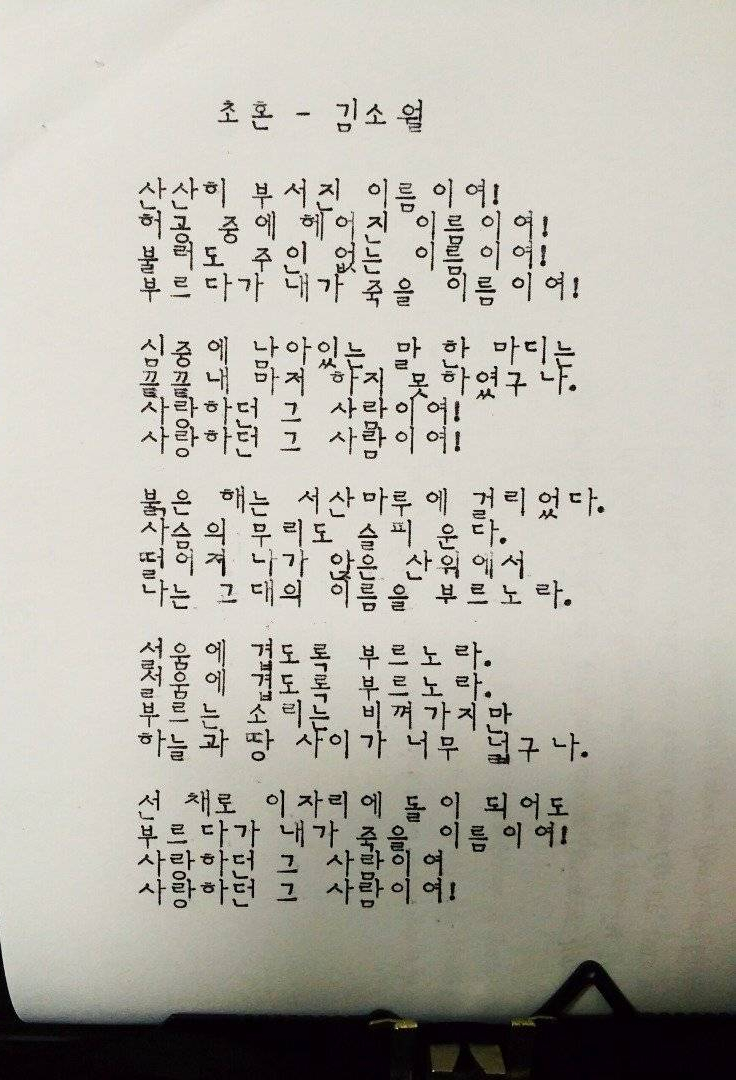 초혼 - 김소월
산산히 부서진 이름이여!
허공 중에 헤어진 이름이여!
불러도 주인 없는 이름이여!
부르다가 내가 죽을 이름이여!
심중에 남아있는 말 한 마디는
끝끝내 마저 하지 못하였구나.
사랑하던 그 사람이여!
사랑하던 그 사람이여!
붉은 해는 서산마루에 걸리었다.
사슴의 무리도 슬피 운다.
떨어져 나가 앉은 산위에서
나는 그대의 이름을 부르노라.
설움에 겹도록 부르노라.
설움에 겹도록 부르노라.
부르는 소리는 비껴가지만
하늘과 땅 사이가 너무 넓구나.
선 채로 이자리에 돌이 되어도
부르다가 내가 죽을 이름이여!
사랑하던 그 사람이여
사랑하던 그 사람이여!